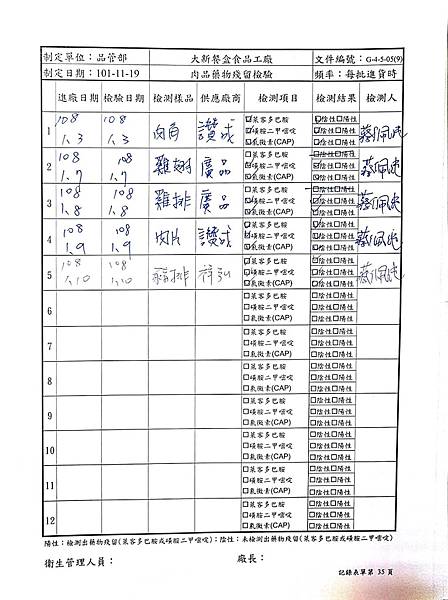 制定單位：品管部 大新餐盒食品工廠 文件編號：G-4-5-05(9)
制定日期：101-11-19 肉品藥物殘留檢驗 頻率：每批進貨時
進廠日期 檢驗日期 檢測樣品 供應廠商 檢測項目 檢測結果 檢測人
1 108 1.3 108 1.3 肉角 讚成 ☑萊客多巴胺 ☑磺胺二甲嘧啶 ☑氯黴素(CAP) ☑陰性□陽性 ☑陰性□陽性 ☑陰性□陽性 蔡佩
2 108 1.7 108 1.7 雞翅 廣品 □萊客多巴胺 ☑磺胺二甲嘧啶 ☑氯黴素(CAP) □陰性□陽性 ☑陰性□陽性 ☑陰性□陽性 蔡佩
3 108 1.8 108 1.8 雞排 廣品 □萊客多巴胺 ☑磺胺二甲嘧啶 ☑氯黴素(CAP) □陰性□陽性 ☑陰性□陽性 ☑陰性□陽性 蔡佩
4 108 1.9 108 1.9 肉片 讚成 ☑萊客多巴胺 ☑磺胺二甲嘧啶 ☑氯黴素(CAP) ☑陰性□陽性 ☑陰性□陽性 ☑陰性□陽性 蔡佩
5 108 1.10 108 1.10 排 祥弘 ☑萊客多巴胺 ☑磺胺二甲嘧啶 □氯黴素(CAP) ☑陰性□陽性 ☑陰性□陽性 □陰性□陽性 蔡佩
6 □萊客多巴胺 □磺胺二甲嘧啶 □氯黴素(CAP) □陰性□陽性 □陰性□陽性 □陰性□陽性
7 □萊客多巴胺 □磺胺二甲嘧啶 □氯黴素(CAP) □陰性□陽性 □陰性□陽性 □陰性□陽性
8 □萊客多巴胺 □磺胺二甲嘧啶 □氯黴素(CAP) □陰性□陽性 □陰性□陽性 □陰性□陽性
9 □萊客多巴胺 □磺胺二甲嘧啶 □氯黴素(CAP) □陰性□陽性 □陰性□陽性 □陰性□陽性
10 □萊客多巴胺 □磺胺二甲嘧啶 □氯黴素(CAP) □陰性□陽性 □陰性□陽性 □陰性□陽性
11 □萊客多巴胺 □磺胺二甲嘧啶 □氯黴素(CAP) □陰性□陽性 □陰性□陽性 □陰性□陽性
12 □萊客多巴胺 □磺胺二甲嘧啶 □氯黴素(CAP) □陰性□陽性 □陰性□陽性 □陰性□陽性
陽性：檢測出藥物殘留(萊客多巴胺或磺胺二甲嘧啶)；陰性：未檢測出藥物殘留(萊客多巴胺或磺胺二甲嘧啶)
衛生管理人員： 廠長：
記錄表單第 35 頁